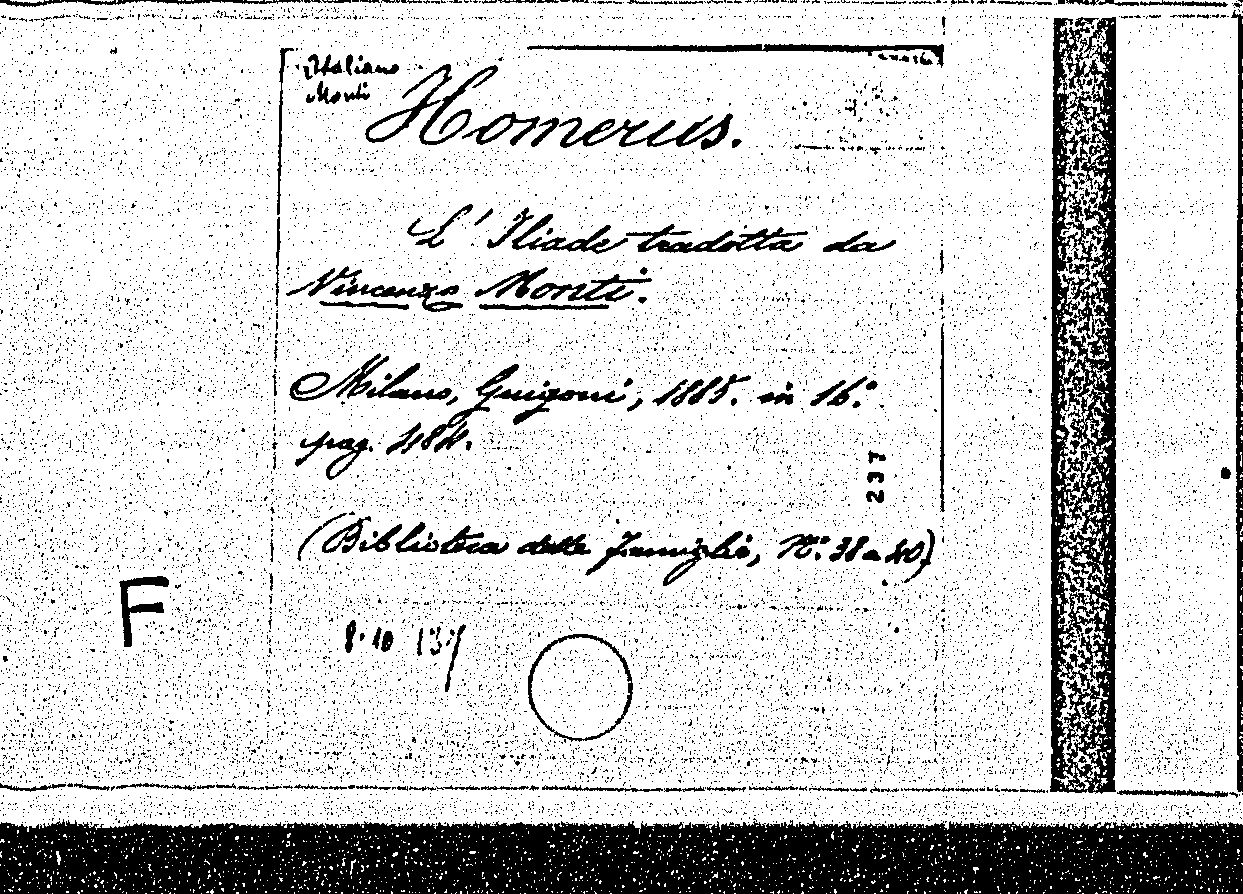 Italiano
Monti
Homerus.
L' Iliade tradotta da
Vincenzo Monti.
Milano, Guigoni, 1885. in 16.º
pag. 484.
237
(Biblioteca delle famiglie, N.º 38 a 40)
F
8. 10